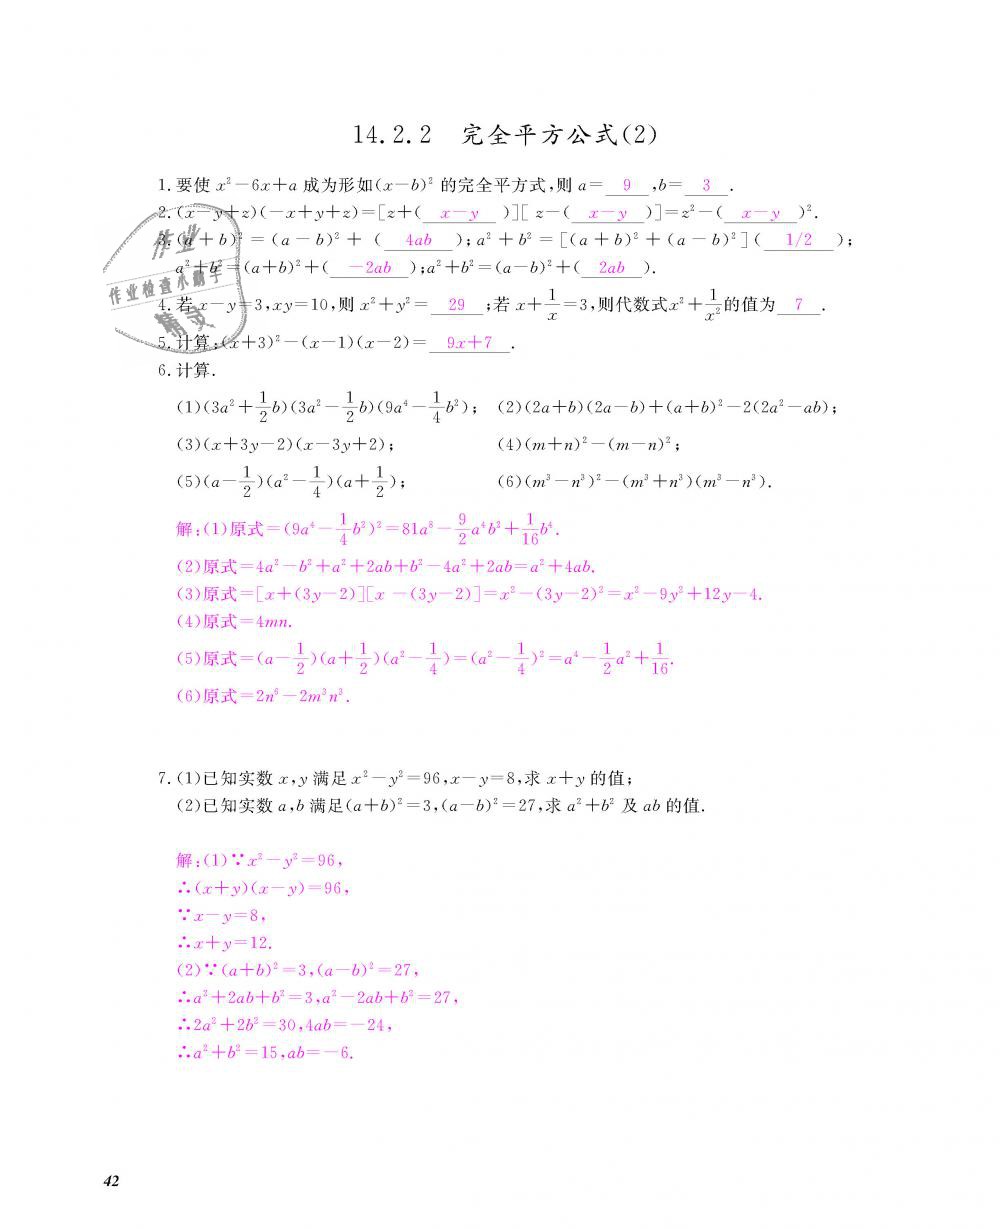 14.2.2 完全平方公式(2)
1.要使 x²-6x+a 成为形如(x-b)² 的完全平方式,则 a= 9 ,b= 3 .
2.(x-y+z)(-x+y+z)=[z+( x-y )][ z-( x-y )]=z²-( x-y )².
3.(a+b)²=(a-b)²+( 4ab );a²+b²=[(a+b)²+(a-b)²]( 1/2 );
a²+b²=(a+b)²+( -2ab );a²+b²=(a-b)²+( 2ab ).
4.若 x-y=3,xy=10,则 x²+y²= 29 ;若 x+1/x=3,则代数式x²+1/x²的值为 7 .
5.计算:(x+3)²-(x-1)(x-2)= 9x+7 .
6.计算.
(1)(3a²+1/2b)(3a²-1/2b)(9a⁴-1/4b²); (2)(2a+b)(2a-b)+(a+b)²-2(2a²-ab);
(3)(x+3y-2)(x-3y+2); (4)(m+n)²-(m-n)²;
(5)(a-1/2)(a²-1/4)(a+1/2); (6)(m³-n³)²-(m³+n³)(m³-n³).
解:(1)原式=(9a⁴-1/4b²)²=81a⁸-9/2a⁴b²+1/16b⁴.
(2)原式=4a²-b²+a²+2ab+b²-4a²+2ab=a²+4ab.
(3)原式=[x+(3y-2)][x-(3y-2)]=x²-(3y-2)²=x²-9y²+12y-4.
(4)原式=4mn.
(5)原式=(a-1/2)(a+1/2)(a²-1/4)=(a²-1/4)²=a⁴-1/2a²+1/16.
(6)原式=2n⁶-2m³n³.
7.(1)已知实数 x,y 满足 x²-y²=96,x-y=8,求 x+y 的值;
(2)已知实数 a,b 满足(a+b)²=3,(a-b)²=27,求 a²+b² 及 ab 的值.
解:(1)∵x²-y²=96,
∴(x+y)(x-y)=96,
∵x-y=8,
∴x+y=12.
(2)∵(a+b)²=3,(a-b)²=27,
∴a²+2ab+b²=3,a²-2ab+b²=27,
∴2a²+2b²=30,4ab=-24,
∴a²+b²=15,ab=-6.
42
作业
作业检查小帮手
精灵